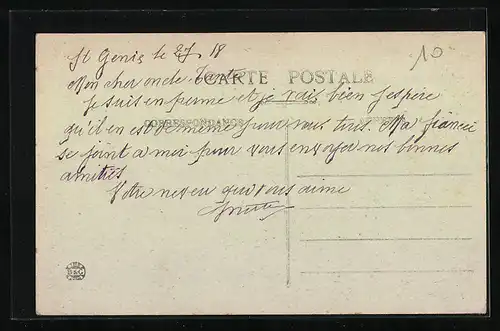 St Genis le 27 18
10
Mon cher oncle Tante
CARTE POSTALE
Je suis en perme et je vais bien J'espère
CORRESPONDANCE
qu'il en est de même pour vous tous. Ma fiancée
se joint a moi pour vous envoyer nos bonnes
amitiés
Votre neveu qui vous aime
B&G